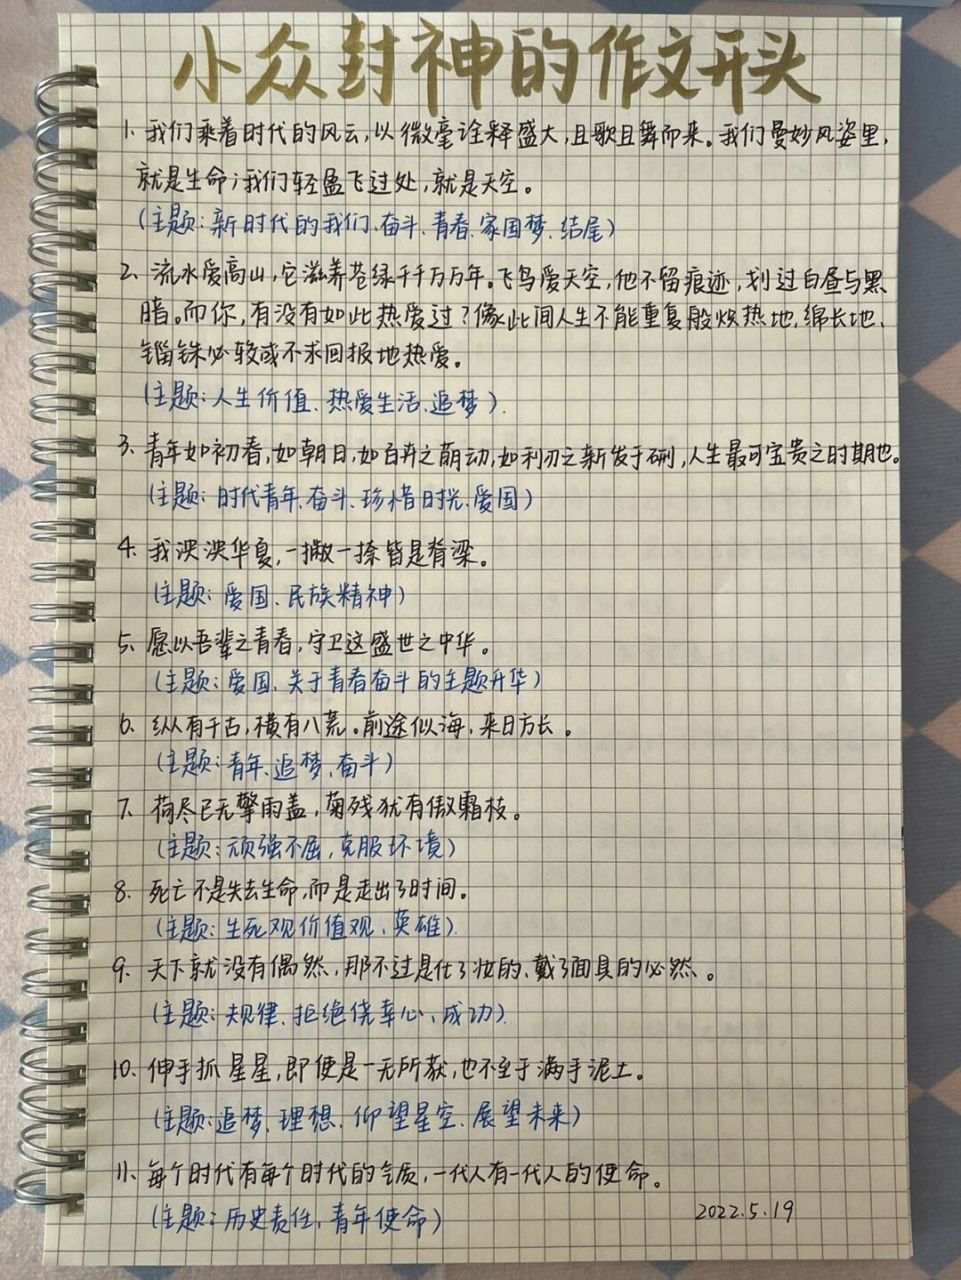 小众封神的作文开头
1. 我们乘着时代的风云,以微毫诠释盛大,且歌且舞而来。我们曼妙风姿里,
就是生命;我们轻盈飞过处,就是天空。
(主题:新时代的我们、奋斗、青春、家国梦、结尾)
2. 流水爱高山,它滋养苍绿千千万万年。飞鸟爱天空,他不留痕迹,划过白昼与黑
暗。而你,有没有如此热爱过?像此间人生不能重复般炽热地,绵长地、
锱铢必较或不求回报地热爱。
(主题:人生价值、热爱生活、追梦).
3. 青年如初春,如朝日,如百卉之萌动,如利刃之新发于硎,人生最可宝贵之时期也。
(主题:时代青年、奋斗、珍惜时光、爱国)
4. 我泱泱华夏,一撇一捺皆是脊梁。
(主题:爱国、民族精神)
5. 愿以吾辈之青春,守卫这盛世之中华。
(主题:爱国、关于青春奋斗的主题升华)
6. 纵有千古,横有八荒。前途似海,来日方长。
(主题:青年、追梦、奋斗)
7. 荷尽已无擎雨盖,菊残犹有傲霜枝。
(主题:顽强不屈,克服环境)
8. 死亡不是失去生命,而是走出了时间。
(主题:生死观、价值观、英雄).
9. 天下就没有偶然,那不过是化了妆的、戴了面具的必然。
(主题:规律、拒绝侥幸心、成功).
10. 伸手抓星星,即使是一无所获,也不至于满手泥土。
(主题:追梦、理想、仰望星空、展望未来)
11. 每个时代有每个时代的气质,一代人有一代人的使命。
(主题:历史责任,青年使命)
2022.5.19